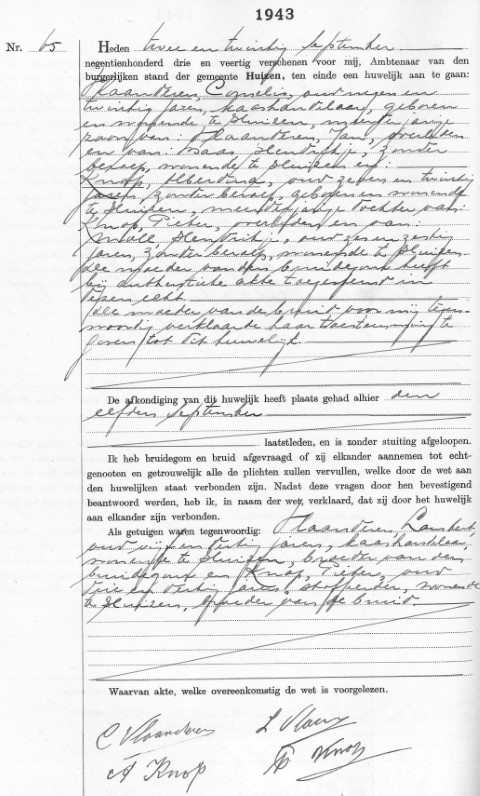 1943
Nr. 65
Heden twee en twintig September
negentienhonderd drie en veertig verschenen voor mij, Ambtenaar van den
burgerlijken stand der gemeente Huizen, ten einde een huwelijk aan te gaan:
Vlaanderen, Cornelis, oud negen en
twintig jaren, kaashandelaar, geboren
en wonende te Huizen, meerderjarige
zoon van: Vlaanderen, Jan, overleden
en van: Maas Hendrikje, zonder
beroep, wonende te Huizen en:
Knop, Albertina, oud zeven en twintig
jaren, zonder beroep, geboren en wonende
te Huizen, meerderjarige dochter van:
Knop, Pieter, overleden en van:
Moll, Hendrikje, oud zes en zestig
jaren, zonder beroep, wonende te Huizen.
De moeder van den bruidegom heeft
bij authentieke akte toegestemd in
dezen echt.
De moeder van de bruid voor mij tegen-
woordig verklaarde haar toestemming te
geven tot dit huwelijk.
De afkondiging van dit huwelijk heeft plaats gehad alhier den
elfden September
laatstleden, en is zonder stuiting afgeloopen.
Ik heb bruidegom en bruid afgevraagd of zij elkander aannemen tot echt-
genooten en getrouwelijk alle de plichten zullen vervullen, welke door de wet aan
den huwelijken staat verbonden zijn. Nadat deze vragen door hen bevestigend
beantwoord werden, heb ik, in naam der wet, verklaard, dat zij door het huwelijk
aan elkander zijn verbonden.
Als getuigen waren tegenwoordig: Vlaanderen, Lambert,
oud vijf en dertig jaren, kaashandelaar,
wonende te Huizen, broeder van den
bruidegom en Knop, Pieter, oud
drie en dertig jaren, wonende
te Huizen, broeder van de bruid.
Waarvan akte, welke overeenkomstig de wet is voorgelezen.
C Vlaanderen L Vlaan
A Knop P Knop